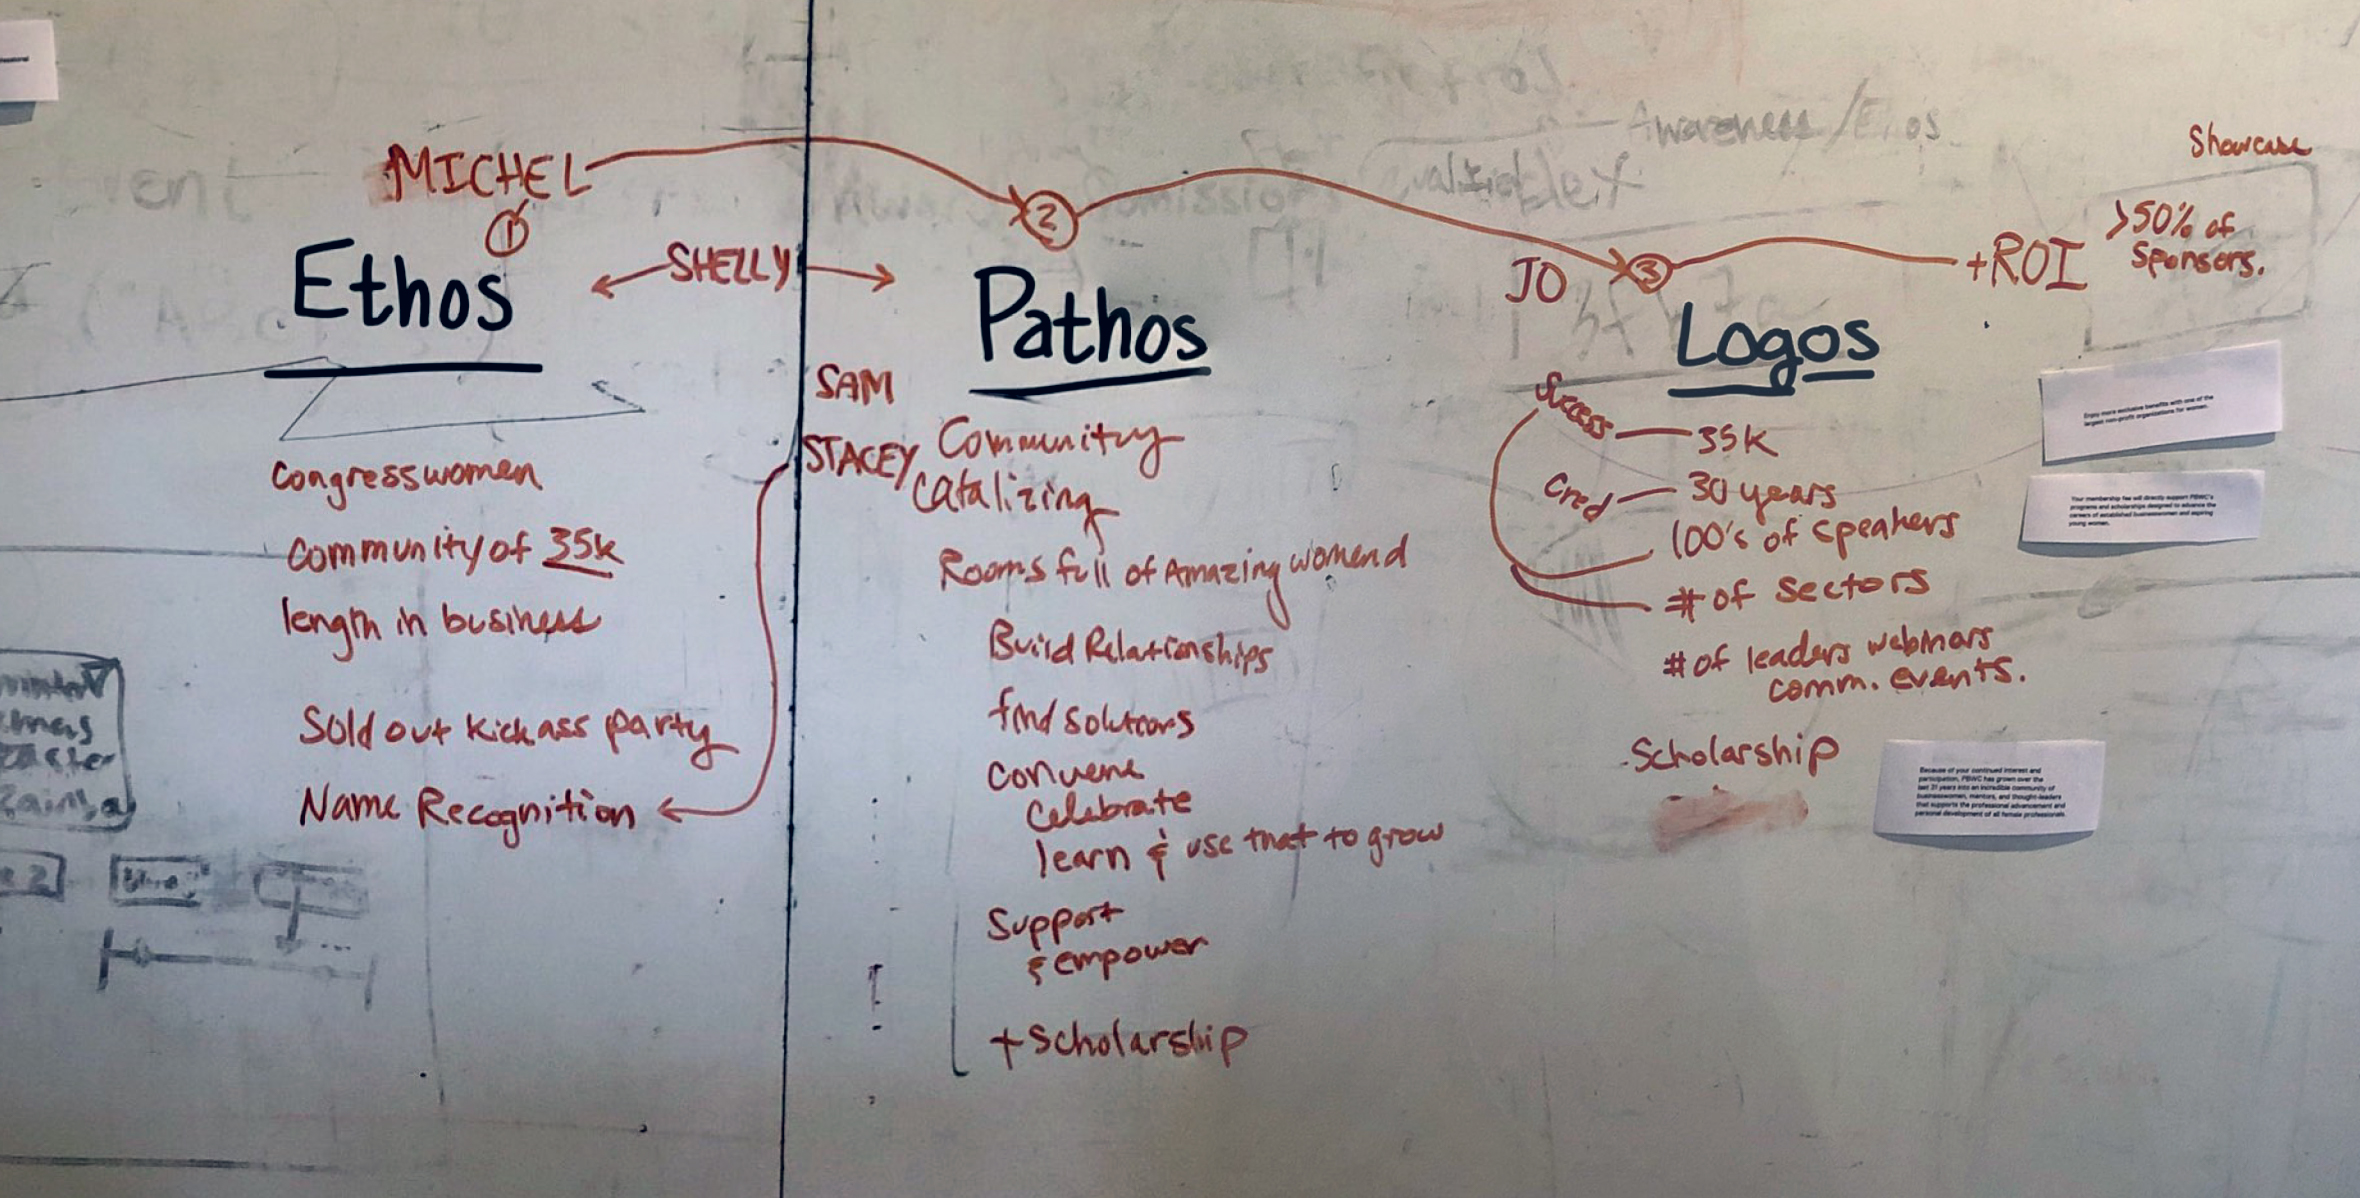 Showcase
MICHEL
1
2
3
SHELLY
JO
+ROI
>50% of
Sponsors.
Awareness/Ethos
Ethos
Congresswomen
Community of 35k
length in business
Sold out kickass party
Name Recognition
SAM
STACEY
Pathos
Community
Catalizing
Rooms full of Amazing womend
Build Relationships
find solutions
Convene
Celebrate
learn & use that to grow
Support
& empower
+ Scholarship
Logos
Success — 35k
Cred — 30 years
100's of speakers
# of sectors
# of leaders webinars
comm. events.
- Scholarship
Enjoy more exclusive benefits with one of the
largest non-profit organizations for women.
Your membership fee will directly support PBWC's
programs and scholarships designed to advance the
careers of established businesswomen and aspiring
young women.
Because of your continued interest and
participation, PBWC has grown over the
last 31 years into an incredible community of
businesswomen, mentors, and thought-leaders
that supports the professional advancement and
personal development of all female professionals.